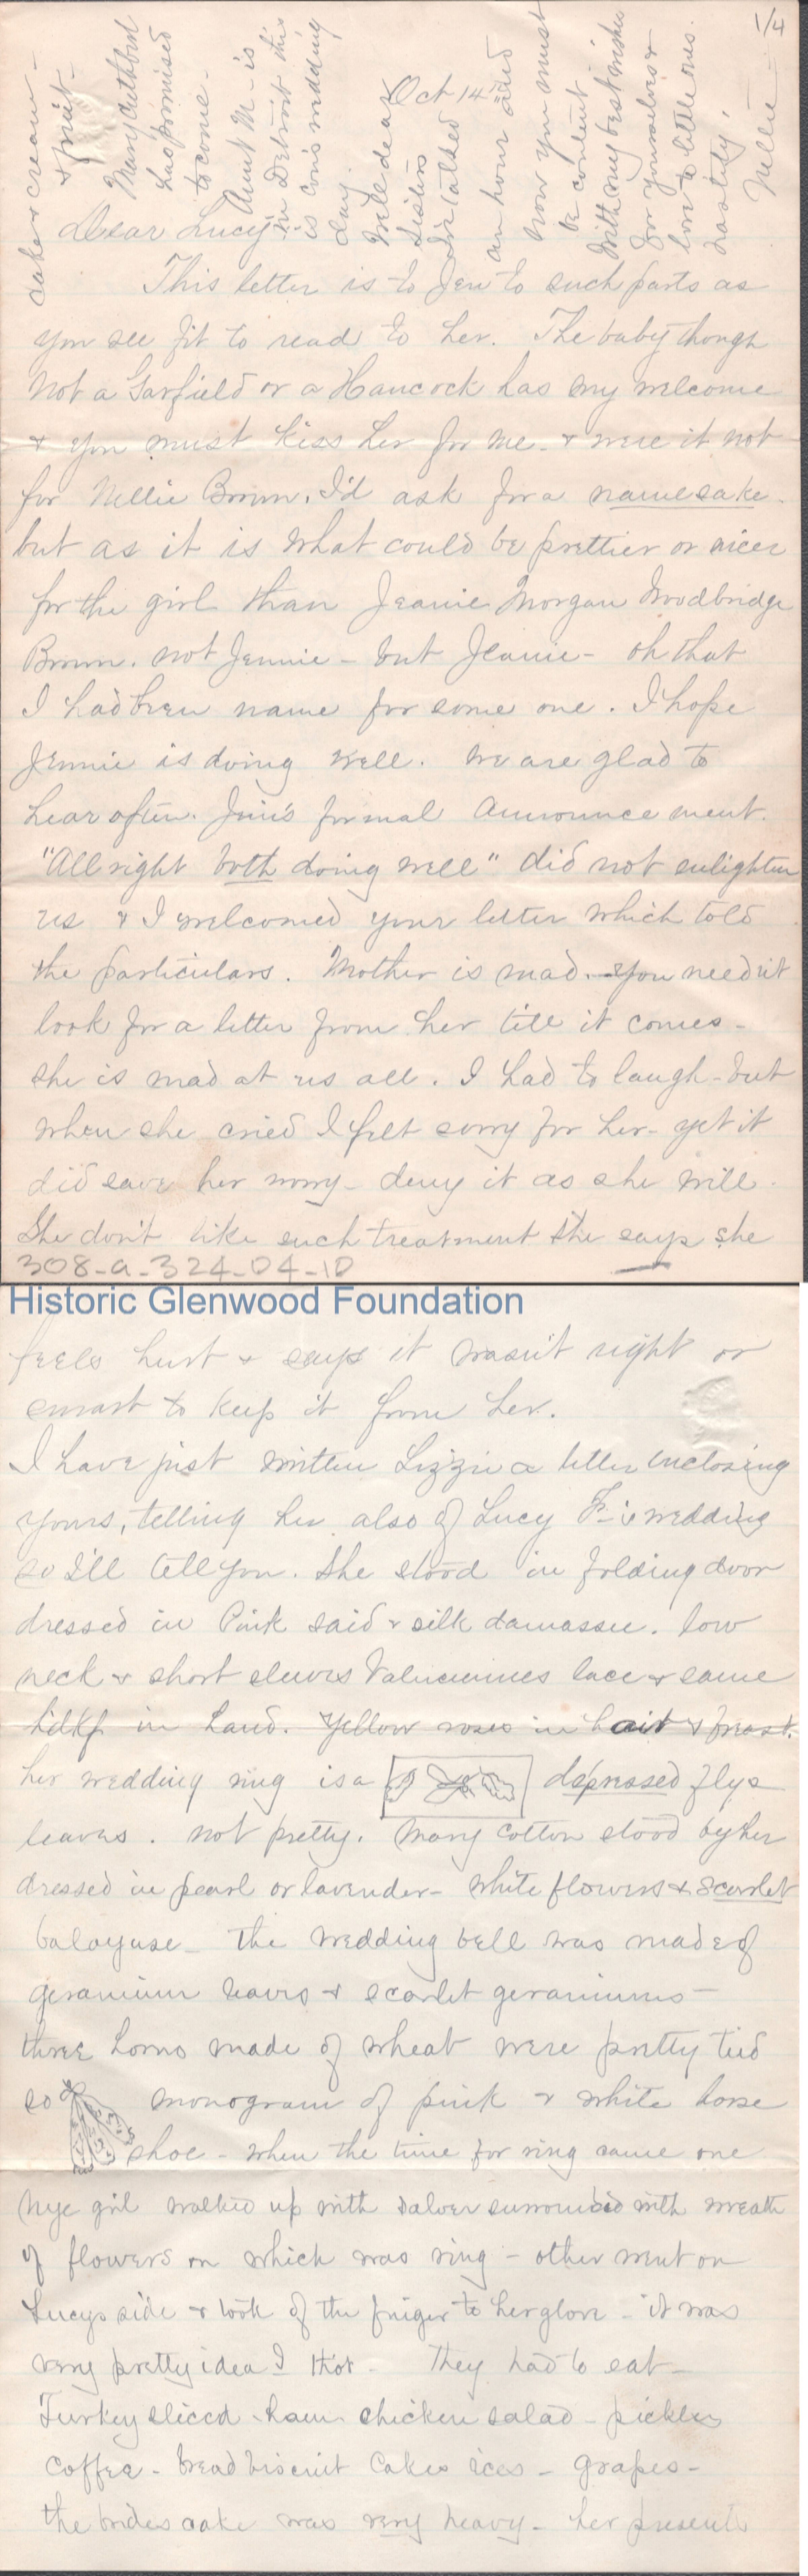 1/4
cake & cream -
& fruit -
Mary Cuthbert
has promised
to come -
Aunt M - is
in Detroit this
is Con's wedding
day.
Well dear
Sisters
I've talked
an hour and
now you must
be content
With my best wishes
for yourselves &
love to little ones.
hastily,
Nellie
Oct 14th
Dear Lucy -
This letter is to Jen to such parts as
you see fit to read to her. The baby though
not a Garfield or a Hancock has my welcome
& you must kiss her for me - & were it not
for Nellie Brown, I'd ask for a namesake -
but as it is what could be prettier or nicer
for the girl than Jeanie Morgan Woodbridge
Brown. not Jennie - but Jeanie - oh that
I had been name for some one. I hope
Jennie is doing well. We are glad to
hear often. Jim's formal announcement.
"All right both doing well" did not enlighten
us & I welcomed your letter which told
the particulars. Mother is mad. You needn't
look for a letter from her till it comes -
she is mad at us all. I had to laugh - but
when she cried I felt sorry for her - yet it
did save her worry - deny it as she will.
She don't like such treatment she says she
308-a-324-04-10
Historic Glenwood Foundation
feels hurt & says it wasn't right or
smart to keep it from her.
I have just written Lizzie a letter enclosing
yours, telling her also of Lucy F-'s wedding
so I'll tell you. She stood in folding door
dressed in Pink said & silk damassee. low
neck & short sleeves Valuciennes lace & same
hdkf in hand. Yellow roses in hair & breast.
her wedding ring is a depressed flys
leaves. not pretty. Mary Cotton stood by her
dressed in pearl or lavender - white flowers & scarlet
balayuse - The wedding bell was made of
geranium leaves & scarlet geraniums -
three horns made of wheat were pretty tied
so monogram of pink & white horse
shoe - when the time for ring came one
Nye girl walked up with salver surrounded with wreath
of flowers on which was ring - other went on
Lucys side & took of the finger to her glove - it was
very pretty idea I thot - They had to eat -
Turkey sliced - ham chicken salad - pickles
coffee - bread biscuit Cakes ices - grapes -
the brides cake was very heavy - her presents